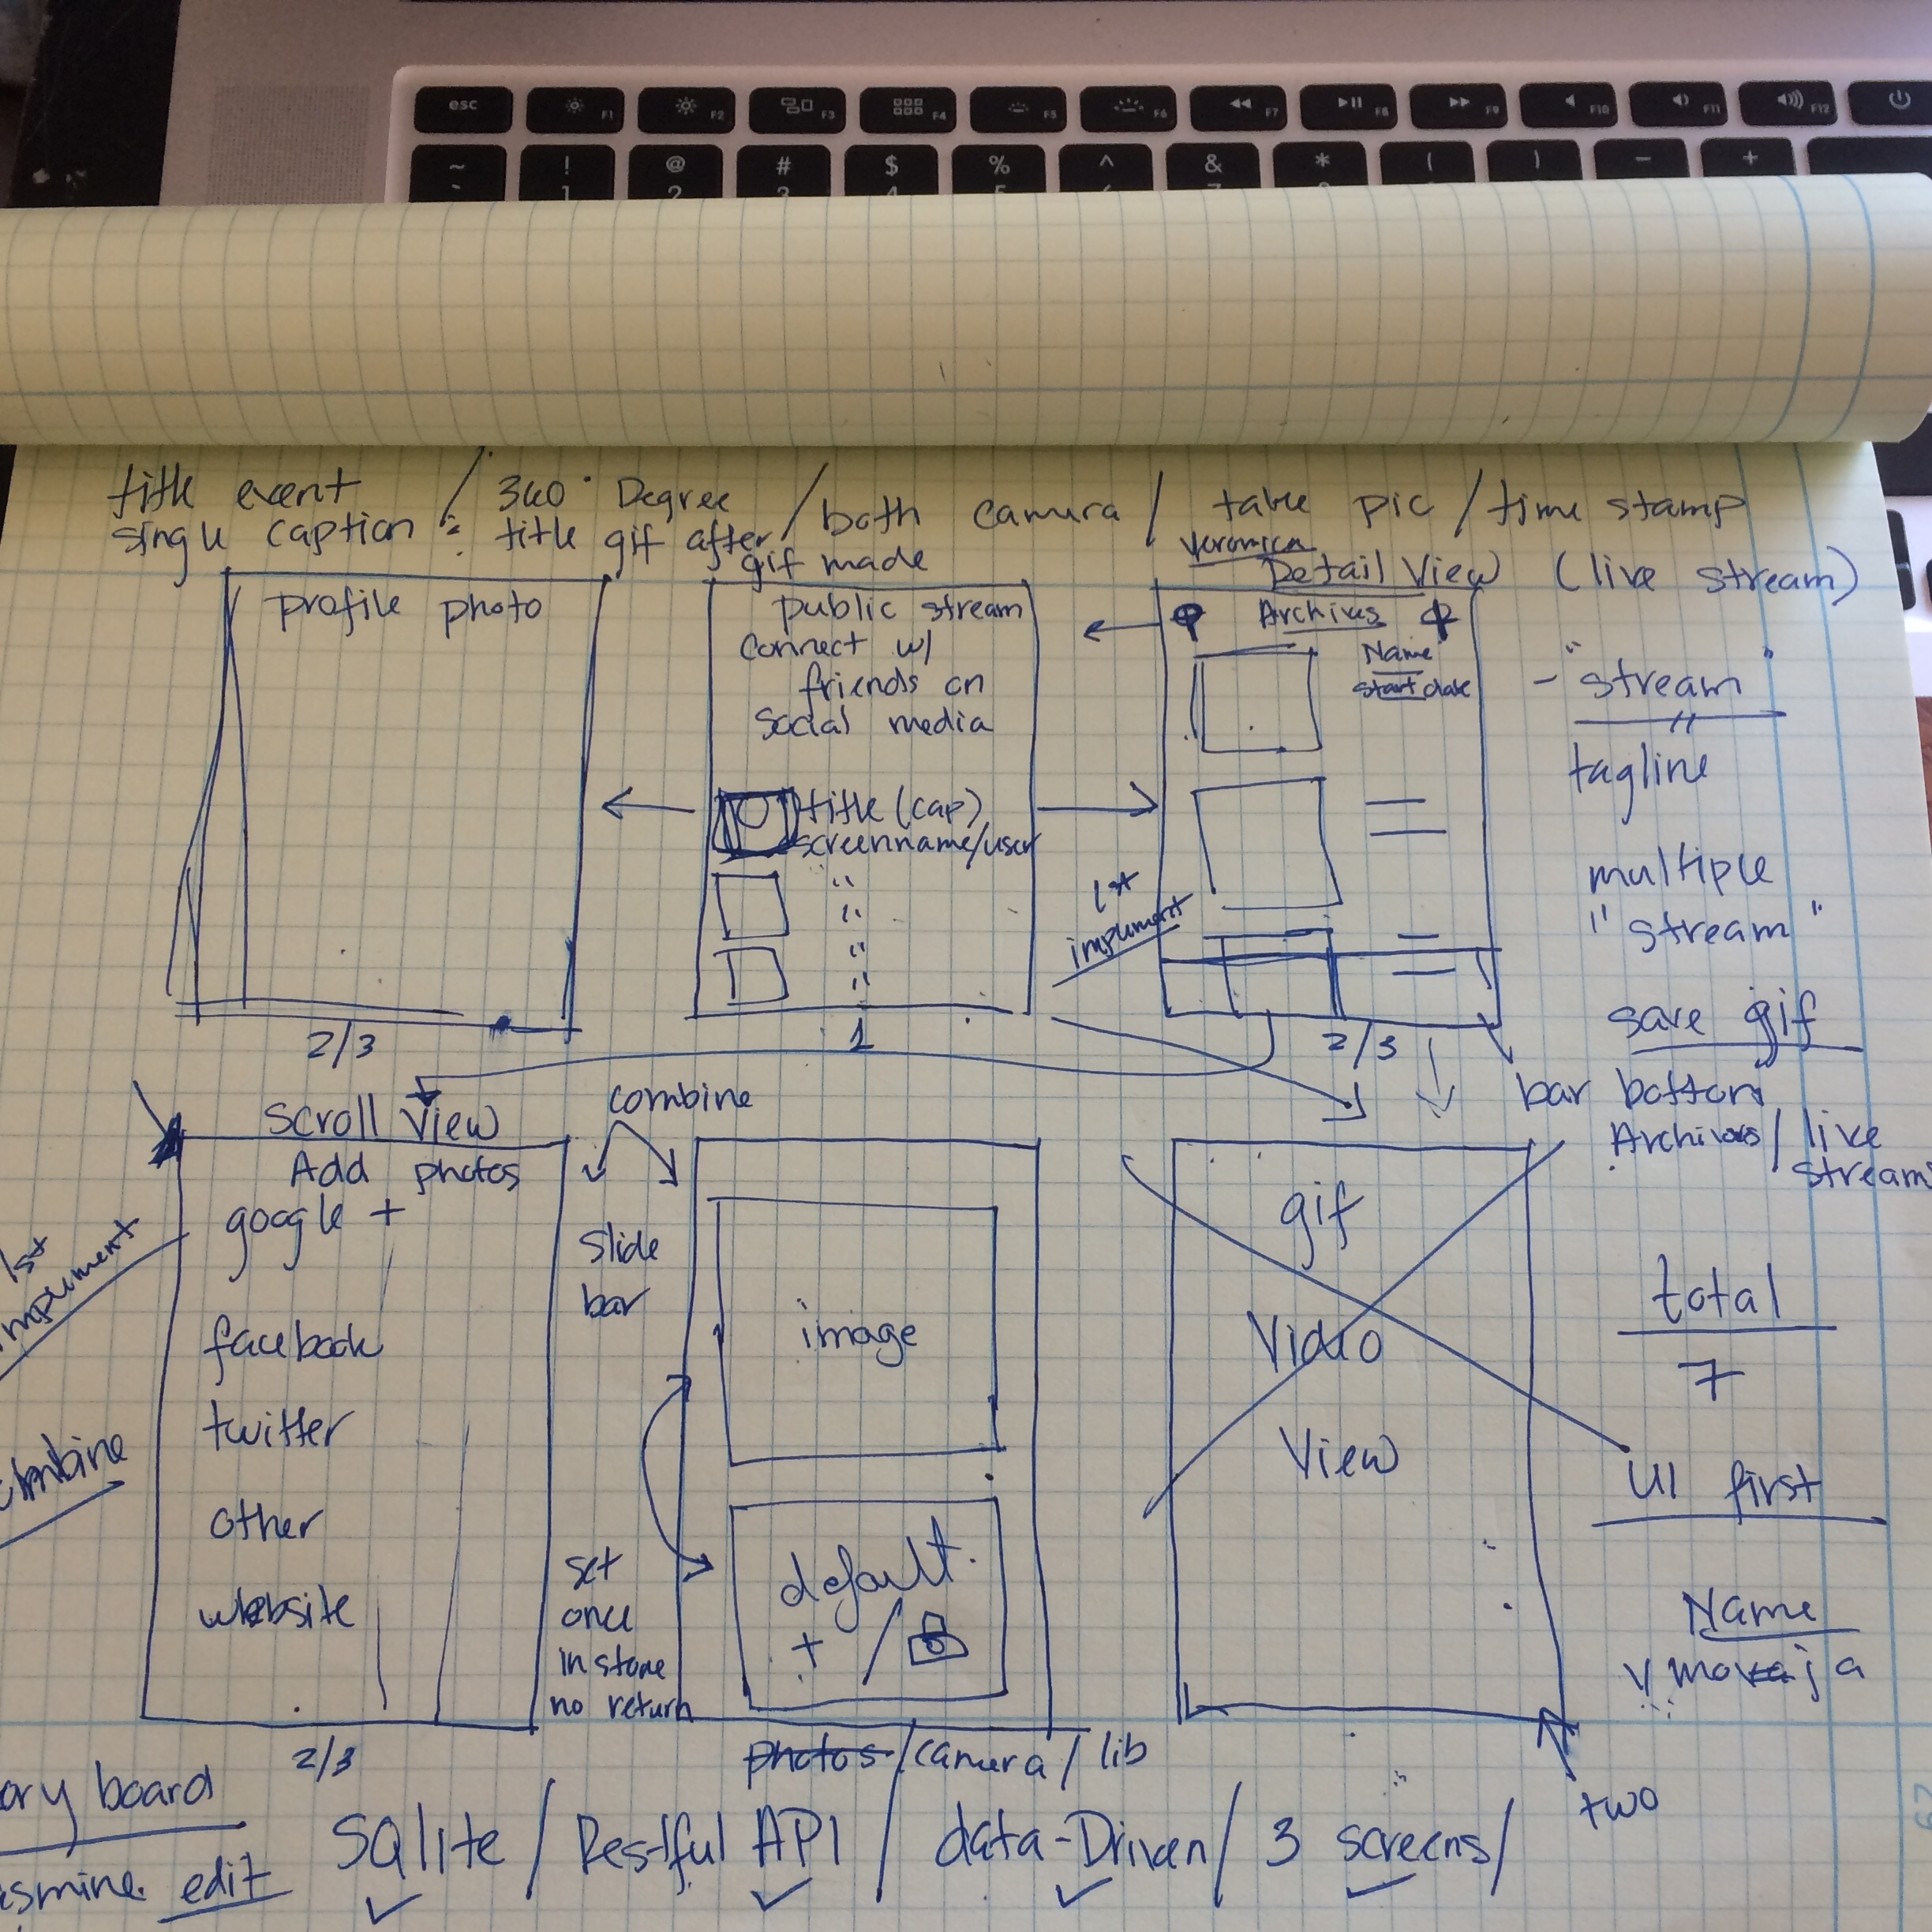 esc F1 F2 F3 F4 F5 F6 F7 F8 F9 F10 F11 F12
~ ! @ # $ % ^ & * ( ) - +
` 1 2 3 4 5
title event / 360° Degree / both camera / take pic / time stamp
single caption : title gif after gif made
Veronica
Detail View (live stream)
profile photo
2/3
public stream
Connect w/
friends on
social media
title (cap)
screenname/user
" "
" "
" "
" "
1
Archives
Name
start date
1st
implement
2/3
- "stream"
tagline
multiple
"stream"
save gif
bar bottom
Archives / live
stream
Scroll View
Add photos
google +
facebook
twitter
other
website
2/3
1st
implement
combine
combine
slide
bar
set
once
in store
no return
image
default
+ /
photos / camera / lib
gif
Video
View
total
7
UI first
Name
ymovaja
two
ory board
asmine edit
SQlite / Restful API / data-Driven / 3 screens /